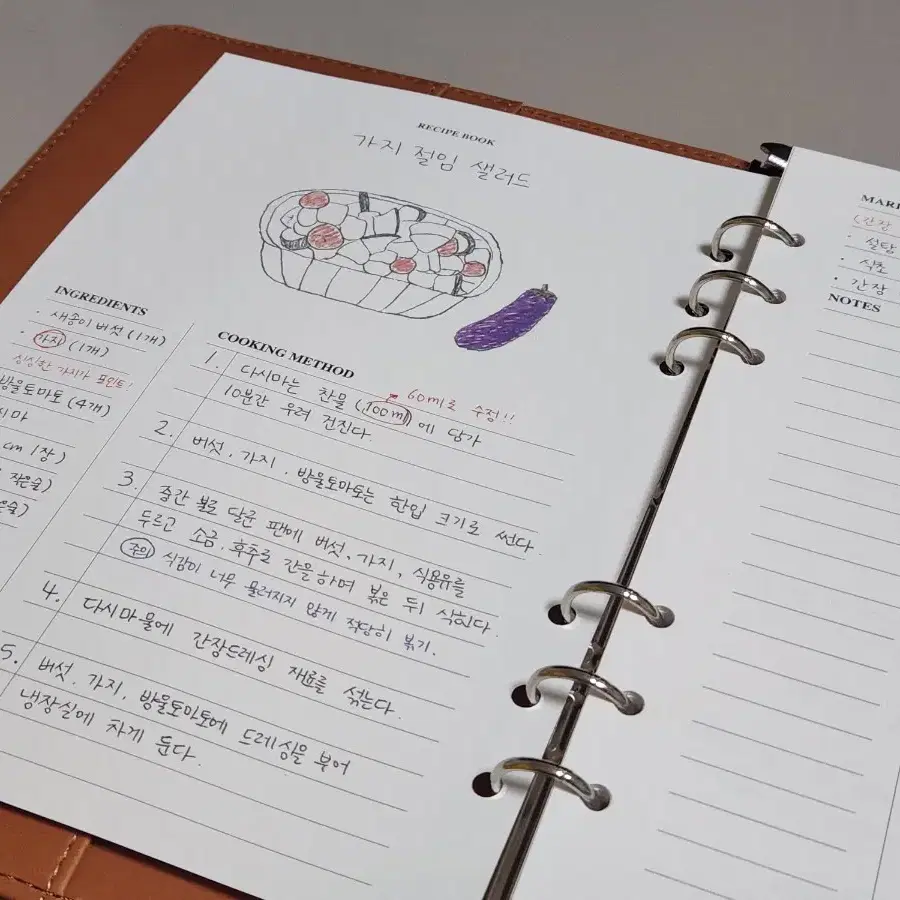 RECIPE BOOK
가지 절임 샐러드
INGREDIENTS
· 새송이 버섯 (1개)
· 가지 (1개)
싱싱한 가지가 포인트!
방울토마토 (4개)
시마
cm 1장)
작은술)
은술)
COOKING METHOD
60ml로 수정!!
1. 다시마는 찬물 (100ml)에 담가
10분간 우려 건진다.
2. 버섯, 가지, 방울토마토는 한입 크기로 썬다.
3. 중간 불로 달군 팬에 버섯, 가지, 식용유를
두르고 소금, 후추로 간을 하며 볶은 뒤 식힌다.
주의 식감이 너무 물러지지 않게 적당히 볶기.
4. 다시마물에 간장드레싱 재료를 섞는다.
5. 버섯, 가지, 방울토마토에 드레싱을 부어
냉장실에 차게 둔다.
MARI
(간장
· 설탕
· 식초
· 간장
NOTES